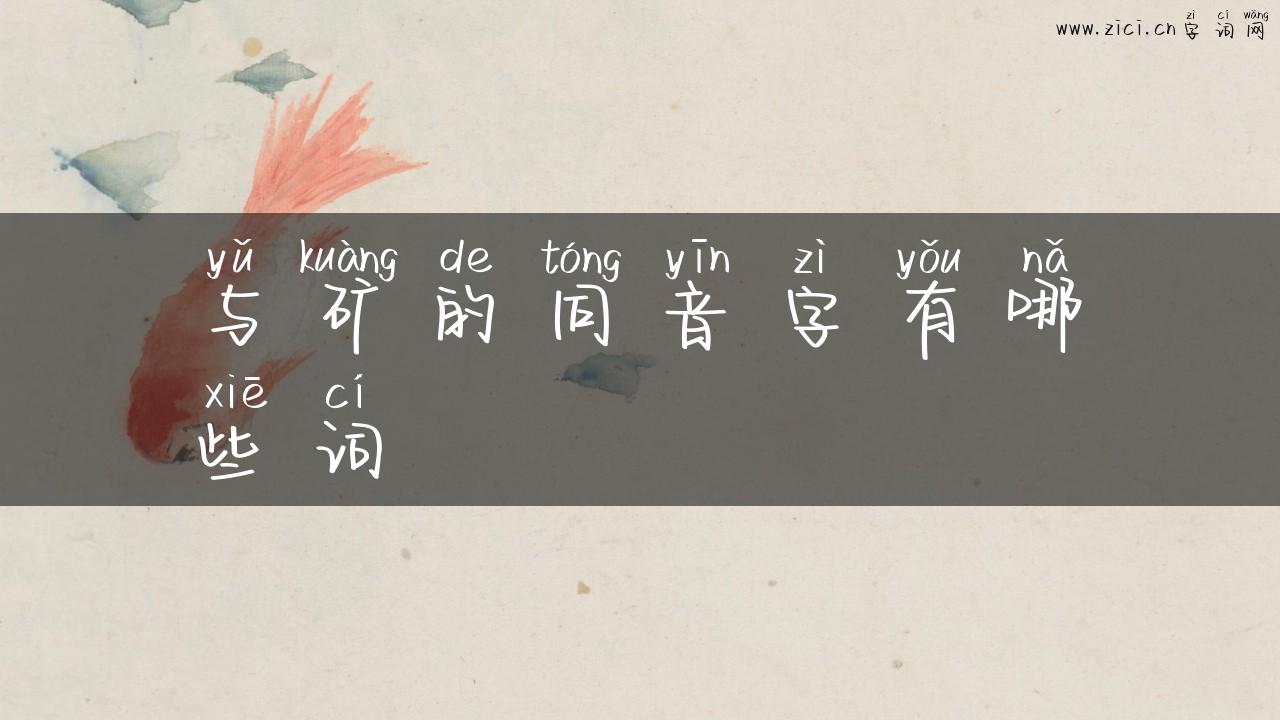 zì cí wǎng
www.zici.cn 字 词 网
yǔ kuàng de tóng yīn zì yǒu nǎ
与 矿 的 同 音 字 有 哪
xiē cí
些 词